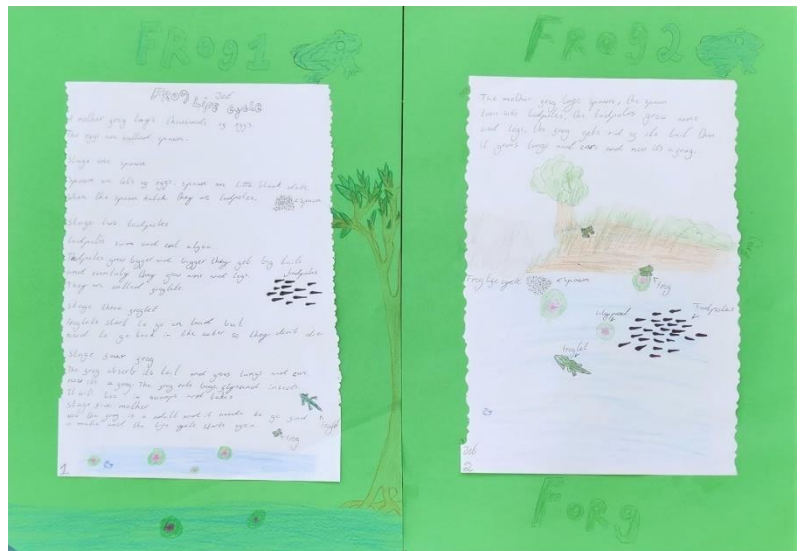 FRog 1
Frog Life Cycle
A mother frog lay's thousands of eggs.
The eggs are called spawn.
Stage one spawn
Spawn are lots of eggs. spawn are little black dots.
when the spawn hatch they are tadpoles.
spawn
Stage two tadpoles
tadpoles swim and eat algae.
Tadpoles grow bigger and bigger they get big tails
and they grow arms and legs.
They are called froglets.
tadpoles
Stage three froglet
froglets start to go on land but
need to go back in the water so they don't die
Stage four frog
The frog absorbs its tail and grows lungs and
now its a frog. The frog eats insects.
It will live in swamps and lakes
Stage five mother
the frog is a adult and it needs to go find
a mate and the life cycle starts again
froglet
frog
1
FRog 2
The mother frog lays spawn, the spawn
turn into tadpoles, the tadpoles grow arms
and legs, the frog gets rid of its tail then
it grows lungs and and now its a frog.
Frog life cycle
spawn
frog
lilypad
Tadpoles
froglet
2
FoRg